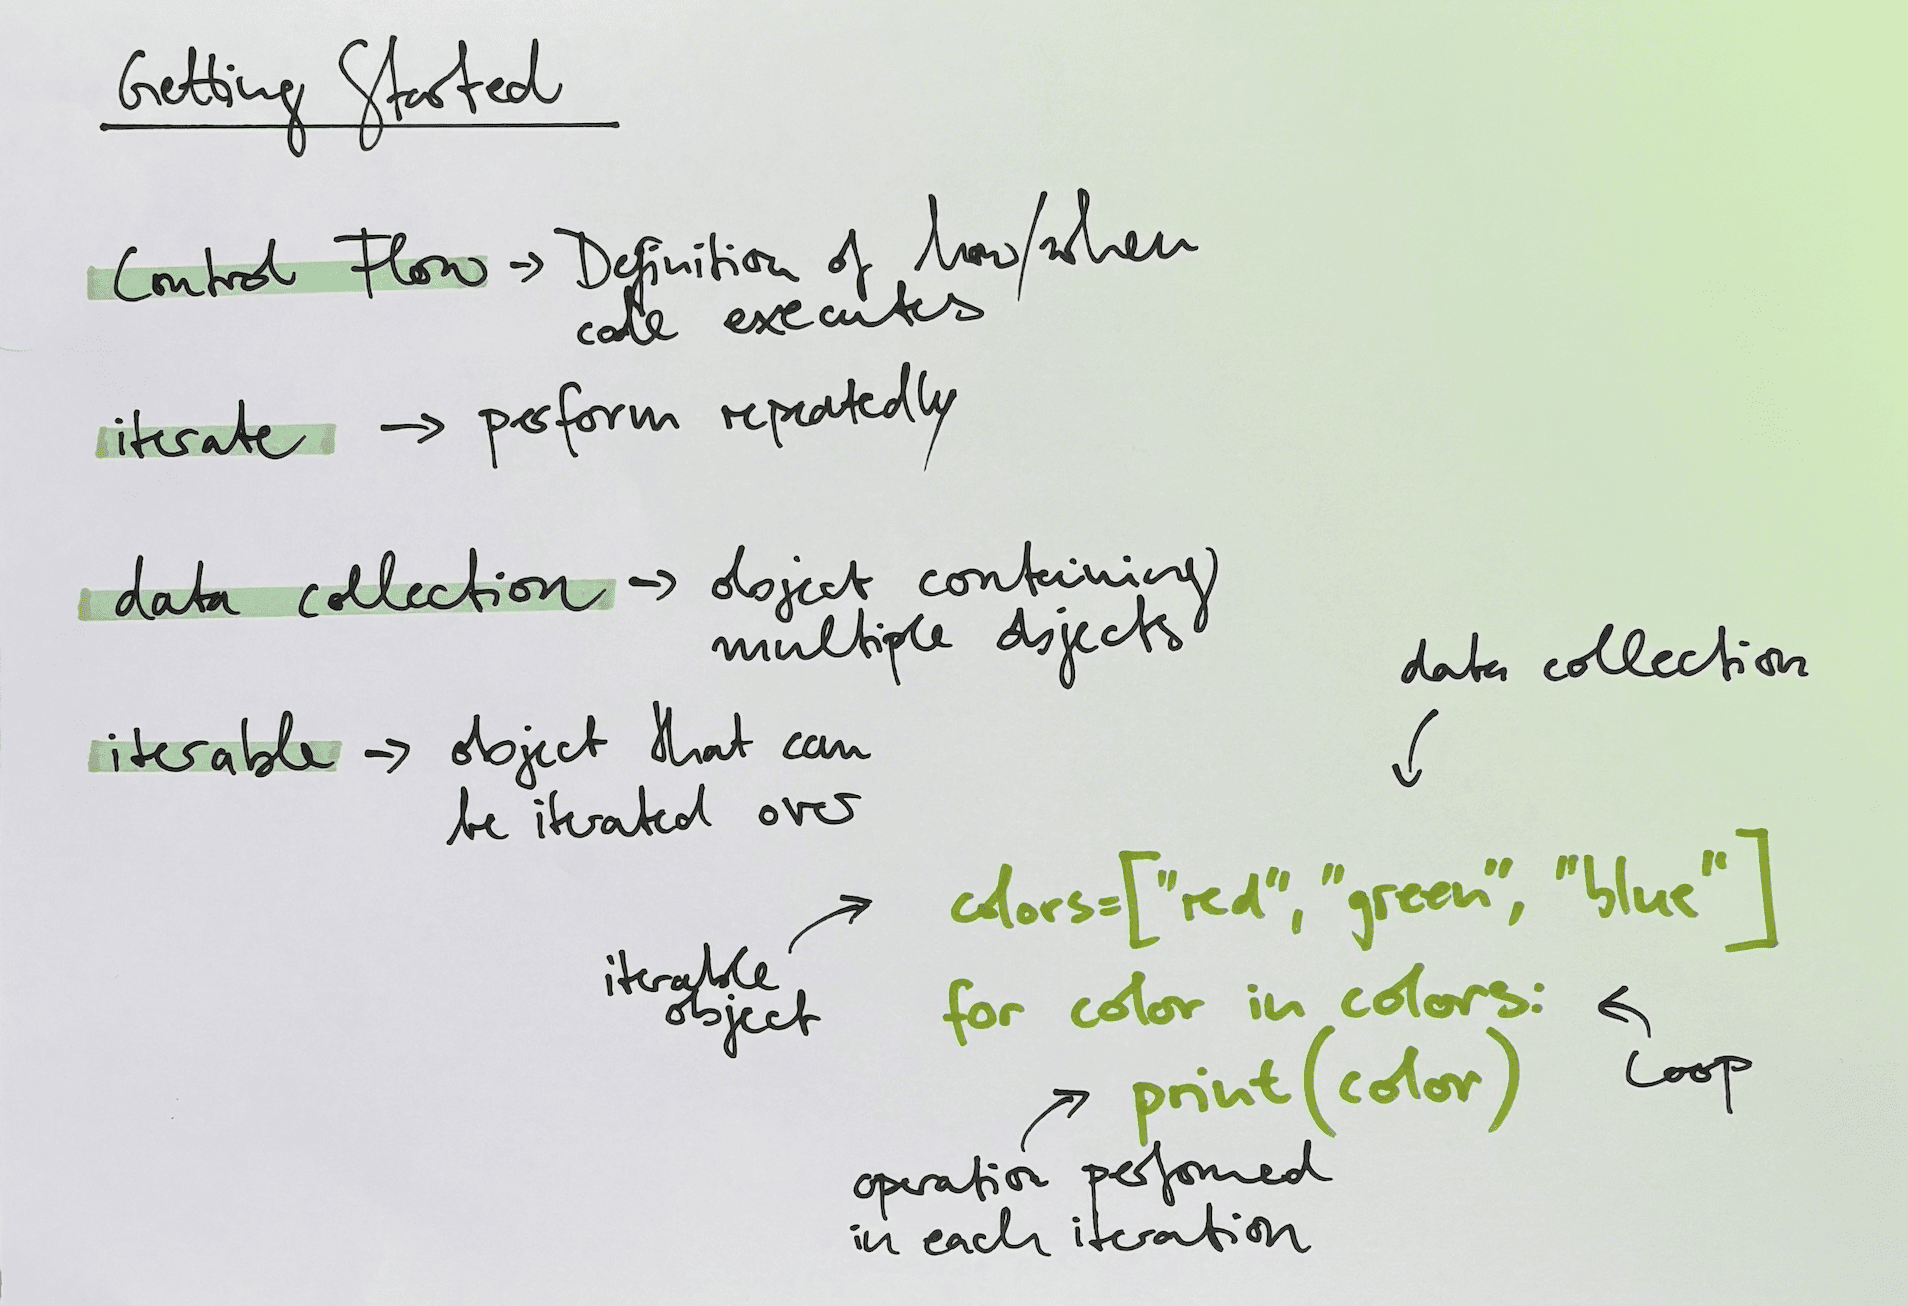 Getting Started
Control Flow -> Definition of how/when
code executes
iterate -> perform repeatedly
data collection -> object containing
multiple objects
iterable -> object that can
be iterated over
data collection
colors=["red", "green", "blue"]
iterable
object
for color in colors:
Loop
print(color)
operation performed
in each iteration